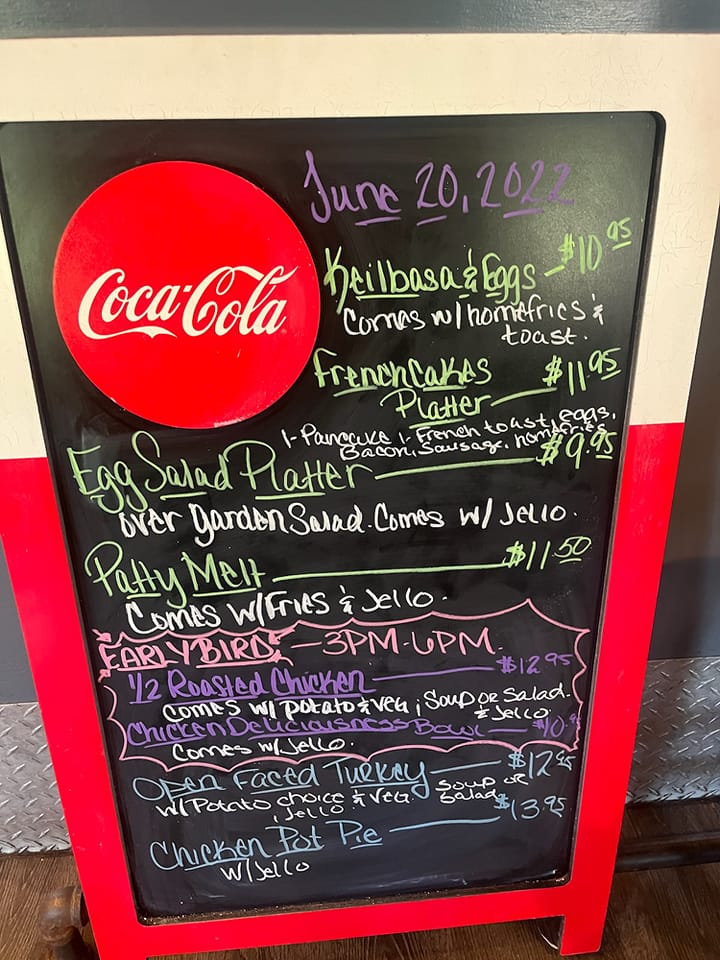 Coca-Cola
June 20, 2022
Keilbasa & Eggs - $10.95
Comes w/ homefries &
toast.
French Cakes
Platter — $11.95
1- Pancake 1- French toast, eggs,
Bacon, Sausage, homefries
Egg Salad Platter — $9.95
over Garden Salad. Comes w/ Jello.
Patty Melt — $11.50
Comes w/ Fries & Jello.
EARLY BIRD — 3PM-6PM
1/2 Roasted Chicken — $12.95
Comes w/ potato & veg, Soup or Salad.
& Jello.
Chicken Deliciousness Bowl — $10.
Comes w/ Jello.
Open Faced Turkey — $12.95
w/ Potato choice & veg. Soup or
Salad
, Jello
Chicken Pot Pie — $13.95
w/ Jello